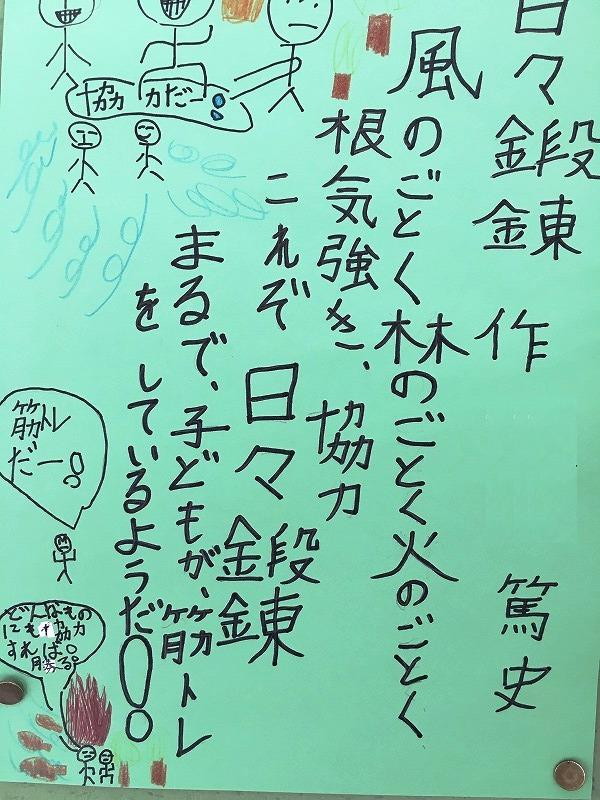 日々鍛錬 作 篤史
風のごとく林のごとく火のごとく
根気強き、協力
これぞ 日々鍛錬
まるで、子どもが、筋トレ
をしているようだ!!
協力だー!
筋トレ
だー!
どんなもの
にも協力
すれば!
勝る!